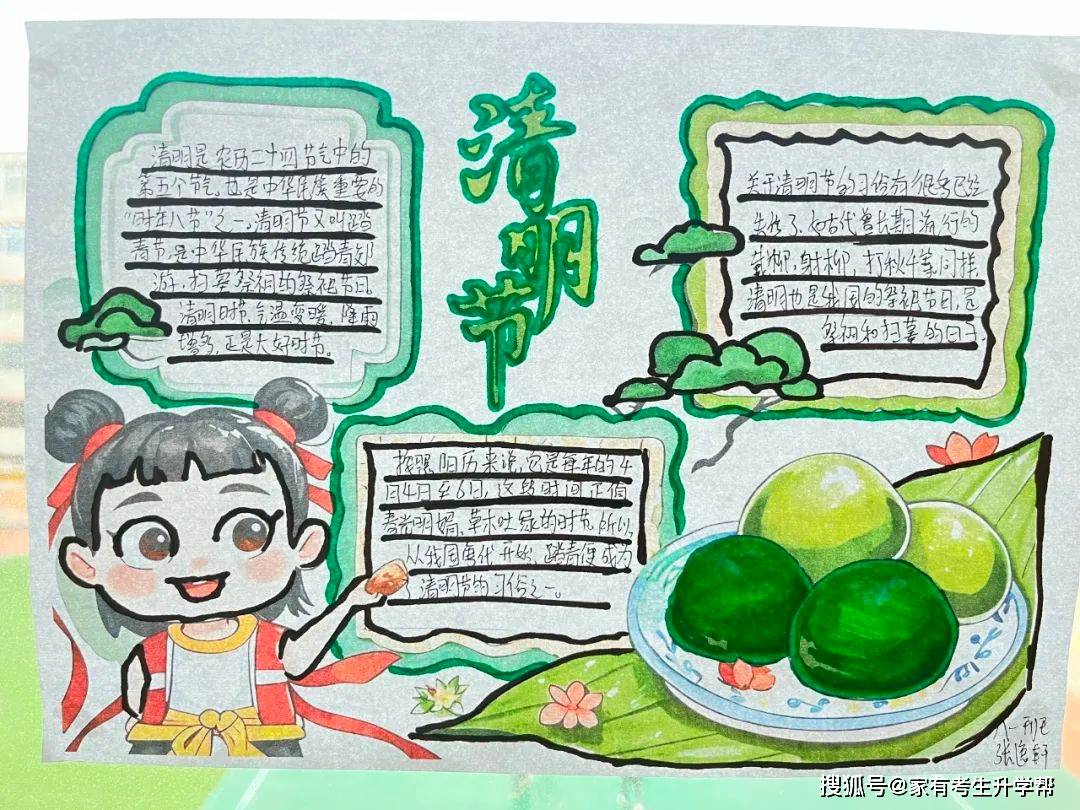 清明节
清明是农历二十四节气中的
第五个节气,也是中华民族重要的
“时年八节”之一。清明节又叫踏
春节,是中华民族传统踏青郊
游,扫墓祭祖的祭祀节日。
清明时节,气温变暖,降雨
增多,正是大好时节。
关于清明节的习俗有很多已经
失传了,如古代曾长期流行的
戴柳,射柳,打秋千等,同样,
清明也是我国的祭祀节日,是
祭祖和扫墓的日子.
按照阳历来说,它是每年的4
月4日至6日,这段时间正值
春光明媚、草木吐绿的时节,所以,
从我国古代开始,踏青便成为
了清明节的习俗之一。
一班
张逸轩
搜狐号@家有考生升学帮